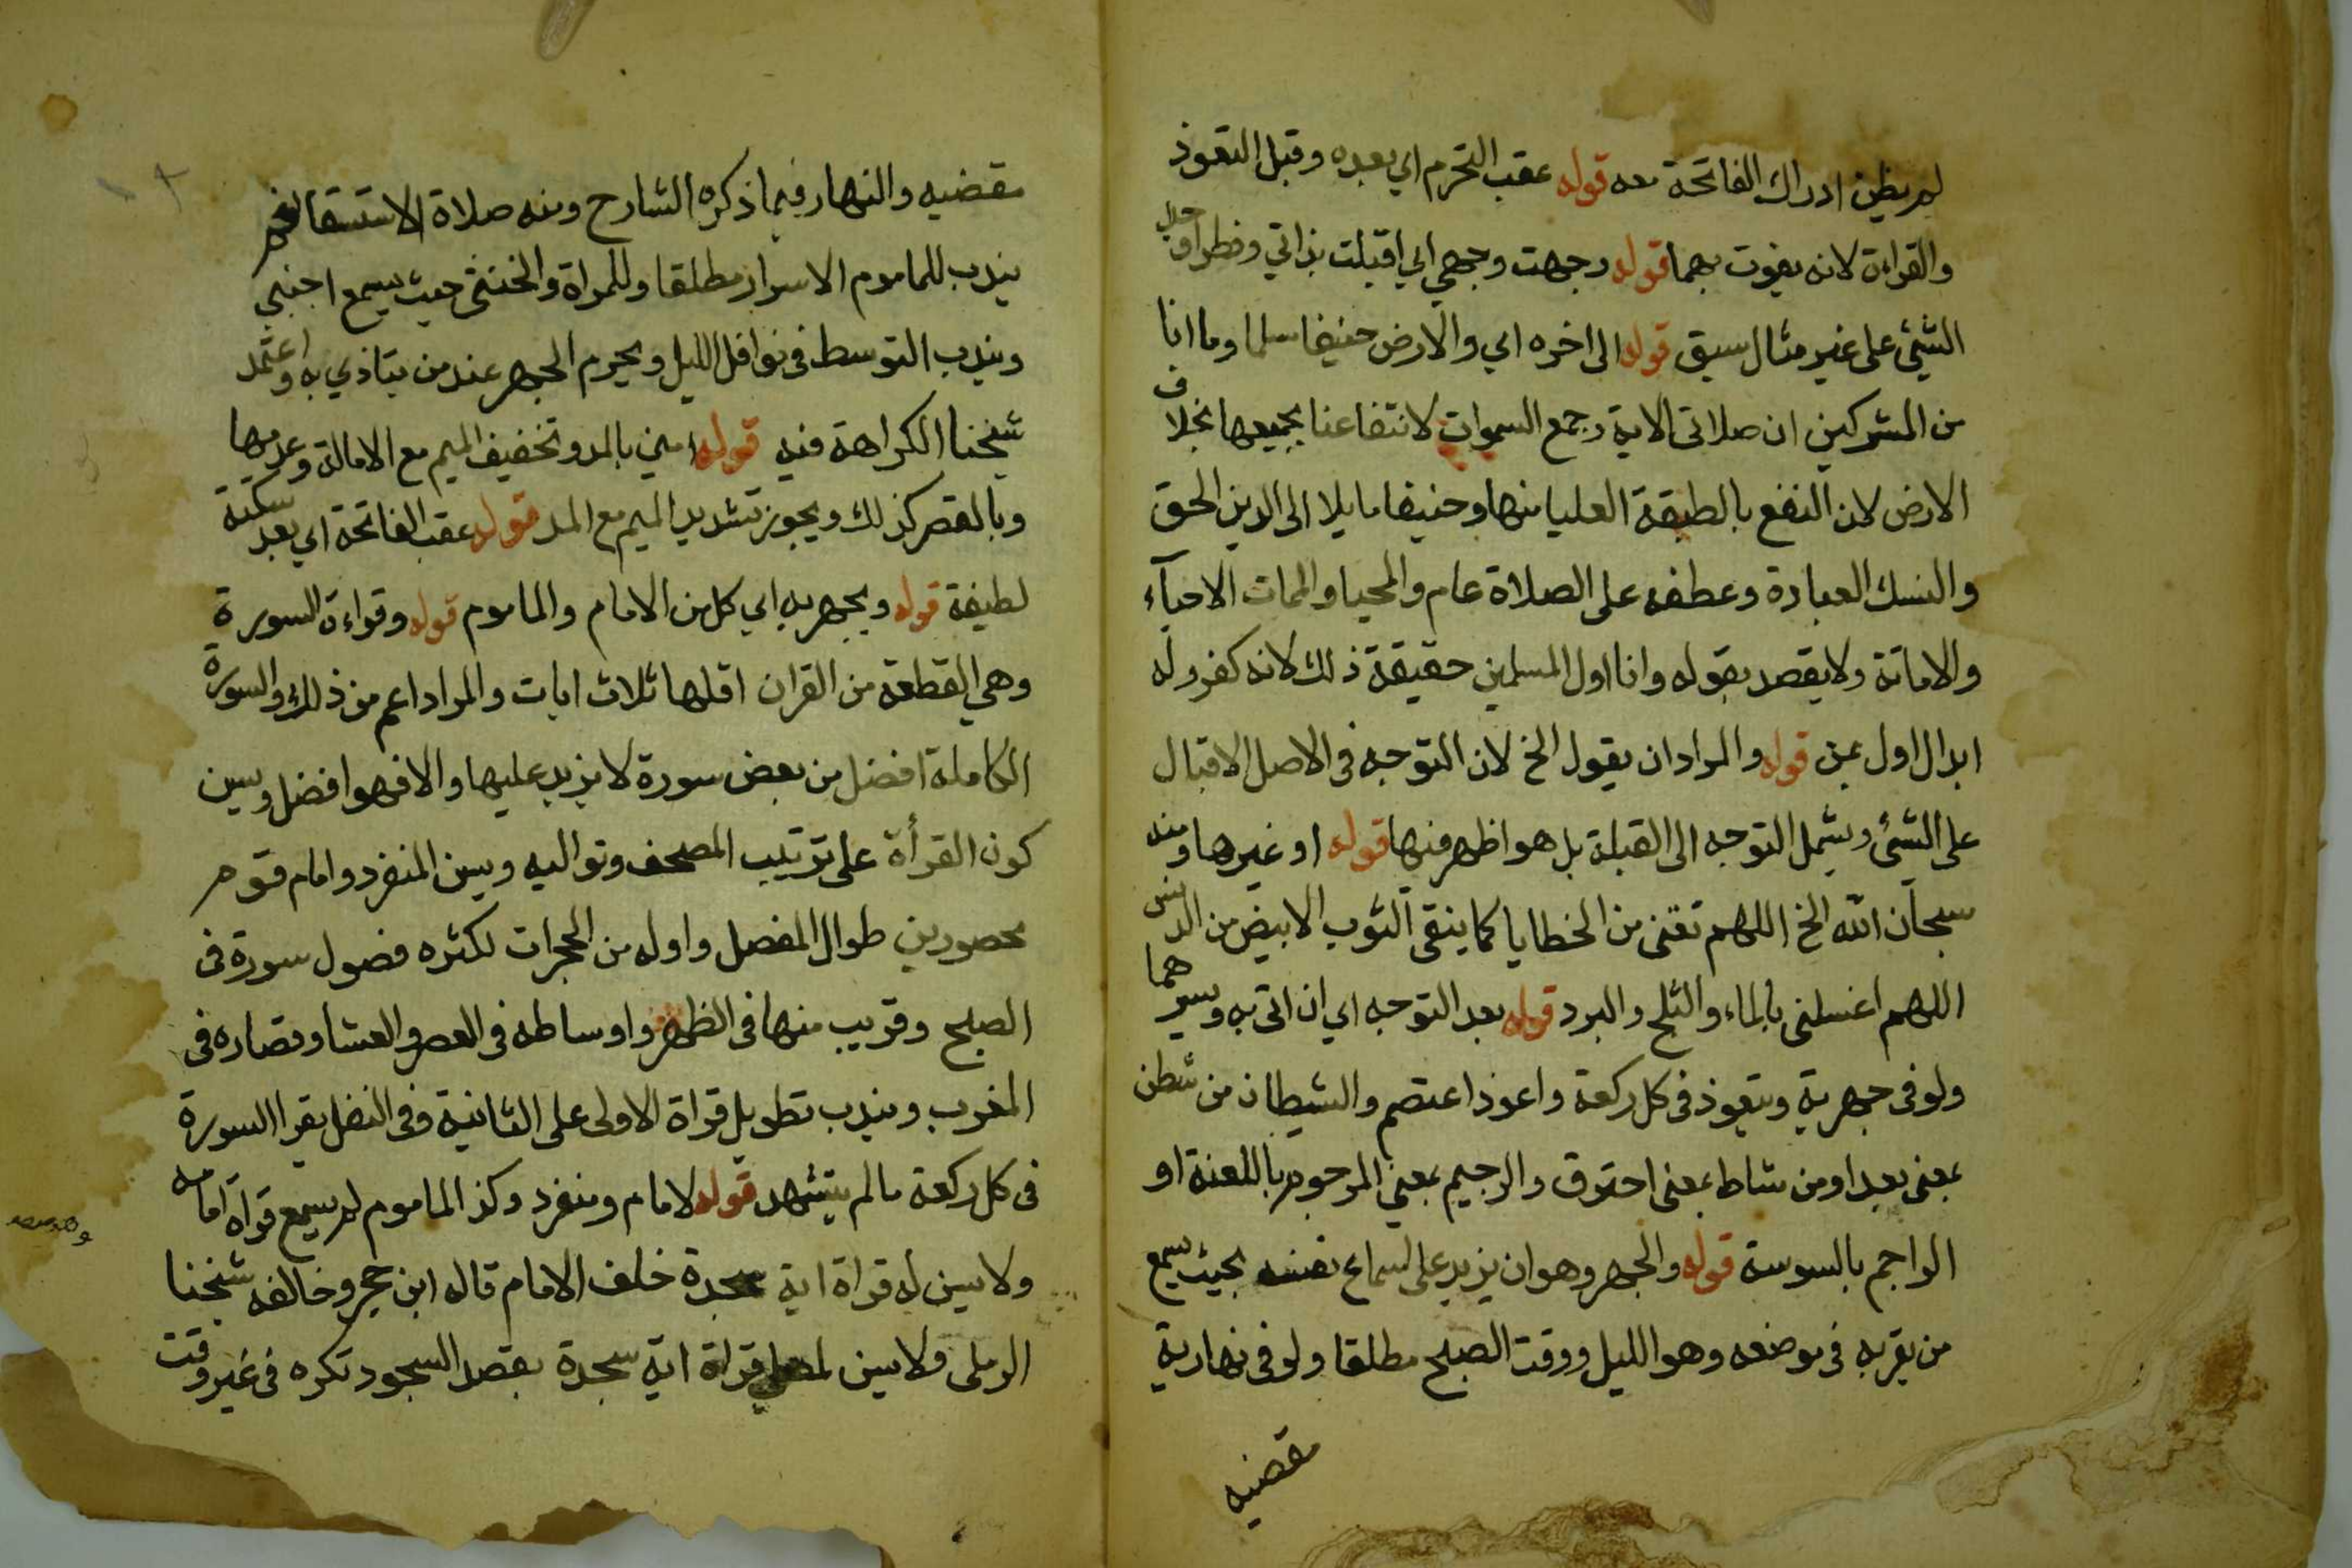 لم يظن ادراك الفاتحة معه قوله عقب التحرم اي بعده وقبل التعوذ
والقراءة لانه يفوت بهما قوله وجهت وجهي اي اقبلت بذاتي وفطر اوجد
الشئي على غير مثال سبق قوله الى اخره اي والارض حنيفا مسلما وما انا
من المشركين ان صلاتى الاية وجمع السموات لانتفاعنا بجميعها بخلاف
الارض لان النفع بالطبقة العليا منها وحنيفا مايلا الى الدين الحق
والنسك العبادة وعطفه على الصلاة عام والمحيا والممات الاحيآء
والاماتة ولا يقصد بقوله وانا اول المسلمين حقيقة ذلك لانه كفر وله
ابدال اول بمن قوله والمراد ان يقول الخ لان التوجه فى الاصل الاقبال
على الشئ ويشمل التوجه الى القبلة بل هو اظهر فيها قوله او غيرها ومنه
سبحان الله الخ اللهم نقنى من الخطايا كما ينقى الثوب الابيض من الدنس
اللهم اغسلنى بالماء والثلج والبرد قوله بعد التوجه اي ان اتى به ويسرهما
ولو فى جهرية ويتعوذ فى كل ركعة واعوذ اعتصم والشيطان من شطن
بمعنى بعد او من شاط بمعنى احترق والرجيم بمعني المرجوم باللعنة او
الراجم بالسوسة قوله والجهر وهو ان يزيد على اسماع نفسه بحيث يسمع
من يقربه فى موضعه وهو الليل ووقت الصبح مطلقا ولو فى نهارية
مقضيه
مقضيه والنهار فيما ذكره الشارح ومنه صلاة الاستسقا نعم
يندب للماموم الاسرار مطلقا وللمراة والخنثى حيث يسمع اجنبي
ويندب التوسط فى نوافل الليل ويحرم الجهر عند من يتاذي به واعتمد
شيخنا الكراهة فيه قوله امين بالمد وتخفيف الميم مع الامالة وعدمها
وبالقصر كذلك ويجوز تشديد الميم مع المد قوله عقب الفاتحة اي بعد سكتة
لطيفة قوله ويجهر به اي كل من الامام والماموم قوله وقراءة السورة
وهي القطعة من القران اقلها ثلاث ايات والمراد اعم من ذلك والسورة
الكاملة افضل من بعض سورة لا يزيد عليها والا فهو افضل ويسن
كون القرأة على ترتيب المصحف وتواليه ويسن لمنفرد وامام قوم
محصورين طوال المفصل واوله من الحجرات لكثره فصول سورة فى
الصبح وقريب منها فى الظهر واوساطه فى العصر والعشا وقصاره فى
المغرب ويندب تطويل قراة الاولى على الثانية وفى النفل يقرا السورة
فى كل ركعة ما لم يتشهد قوله لامام ومنفرد وكذ الماموم لم يسمع قراة امامه
ولا يسن له قراة اية سجدة خلف الامام قاله ابن حجر وخالفه شيخنا
الرملى ولا يسن لمصلى قراة اية سجدة بقصد السجود تكره فى غير وقت